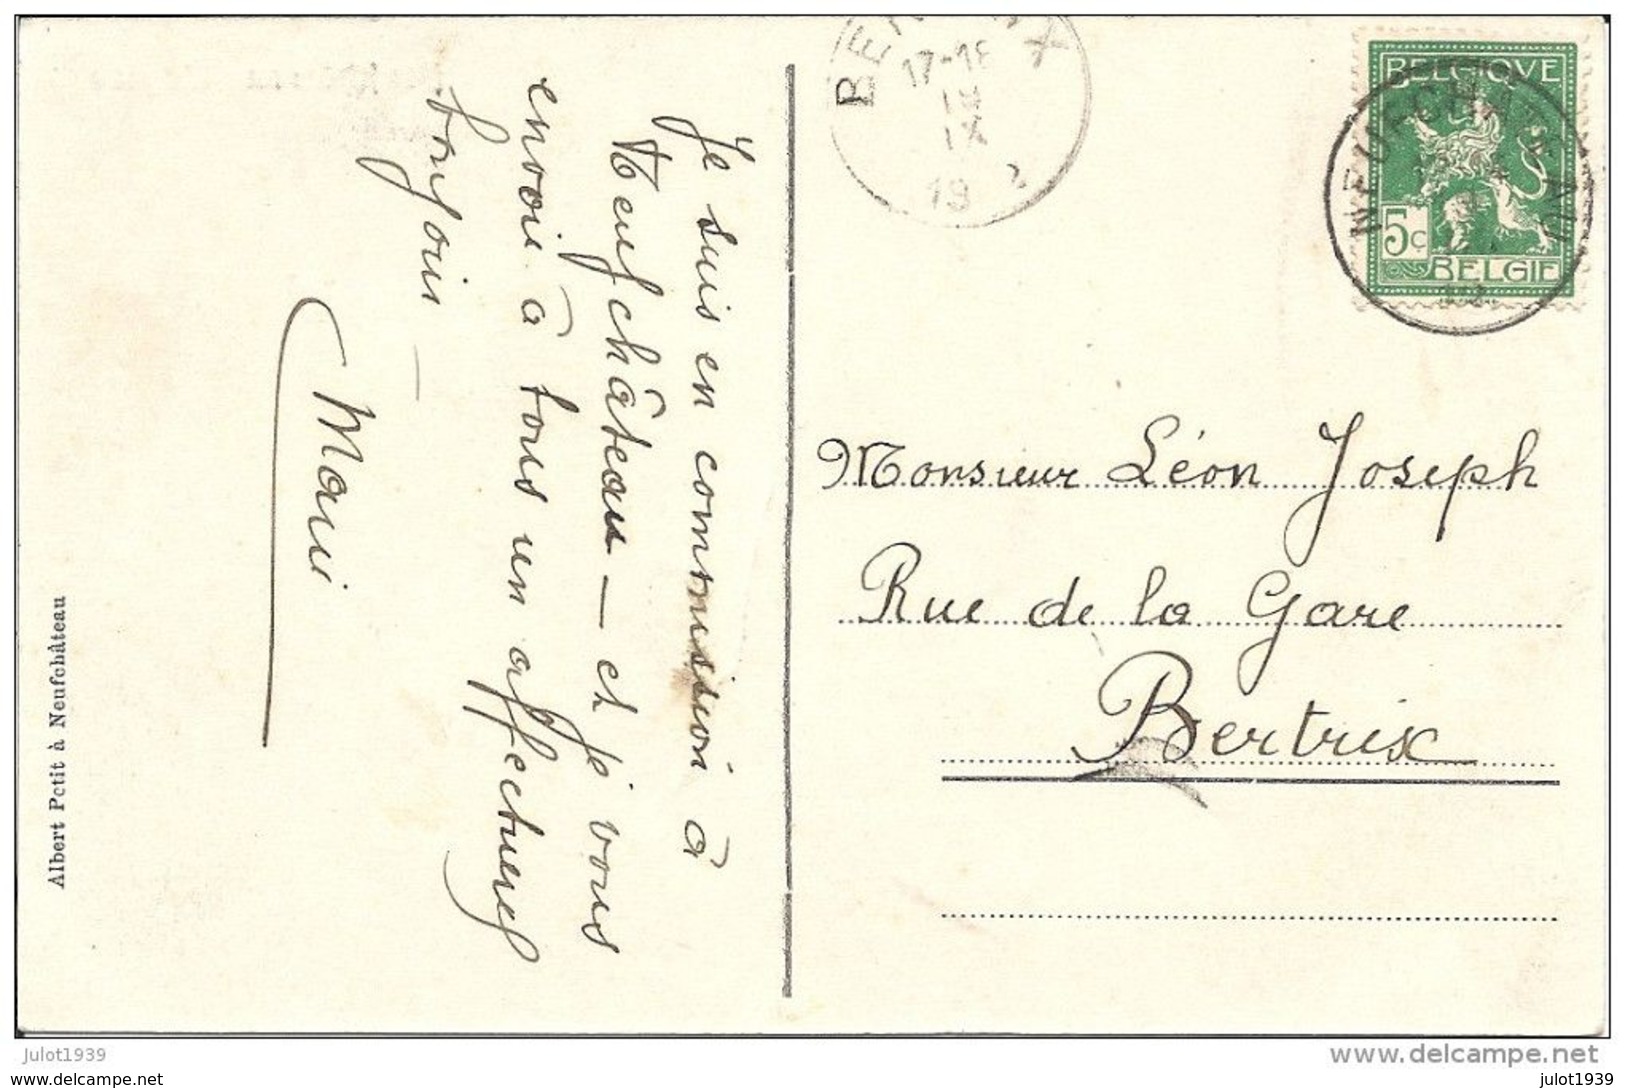 Je suis en commission à
Neufchâteau — et je vous
envoie à tous un affectueux
bonjour —
Marie
Albert Petit à Neufchâteau
17-18
IX
19 2
BELGIQUE
5c
BELGIE
NEUFCHATEAU
Monsieur Léon Joseph
Rue de la Gare
Bertrix
julot1939
www.delcampe.net
www.delcampe.net
julot1939